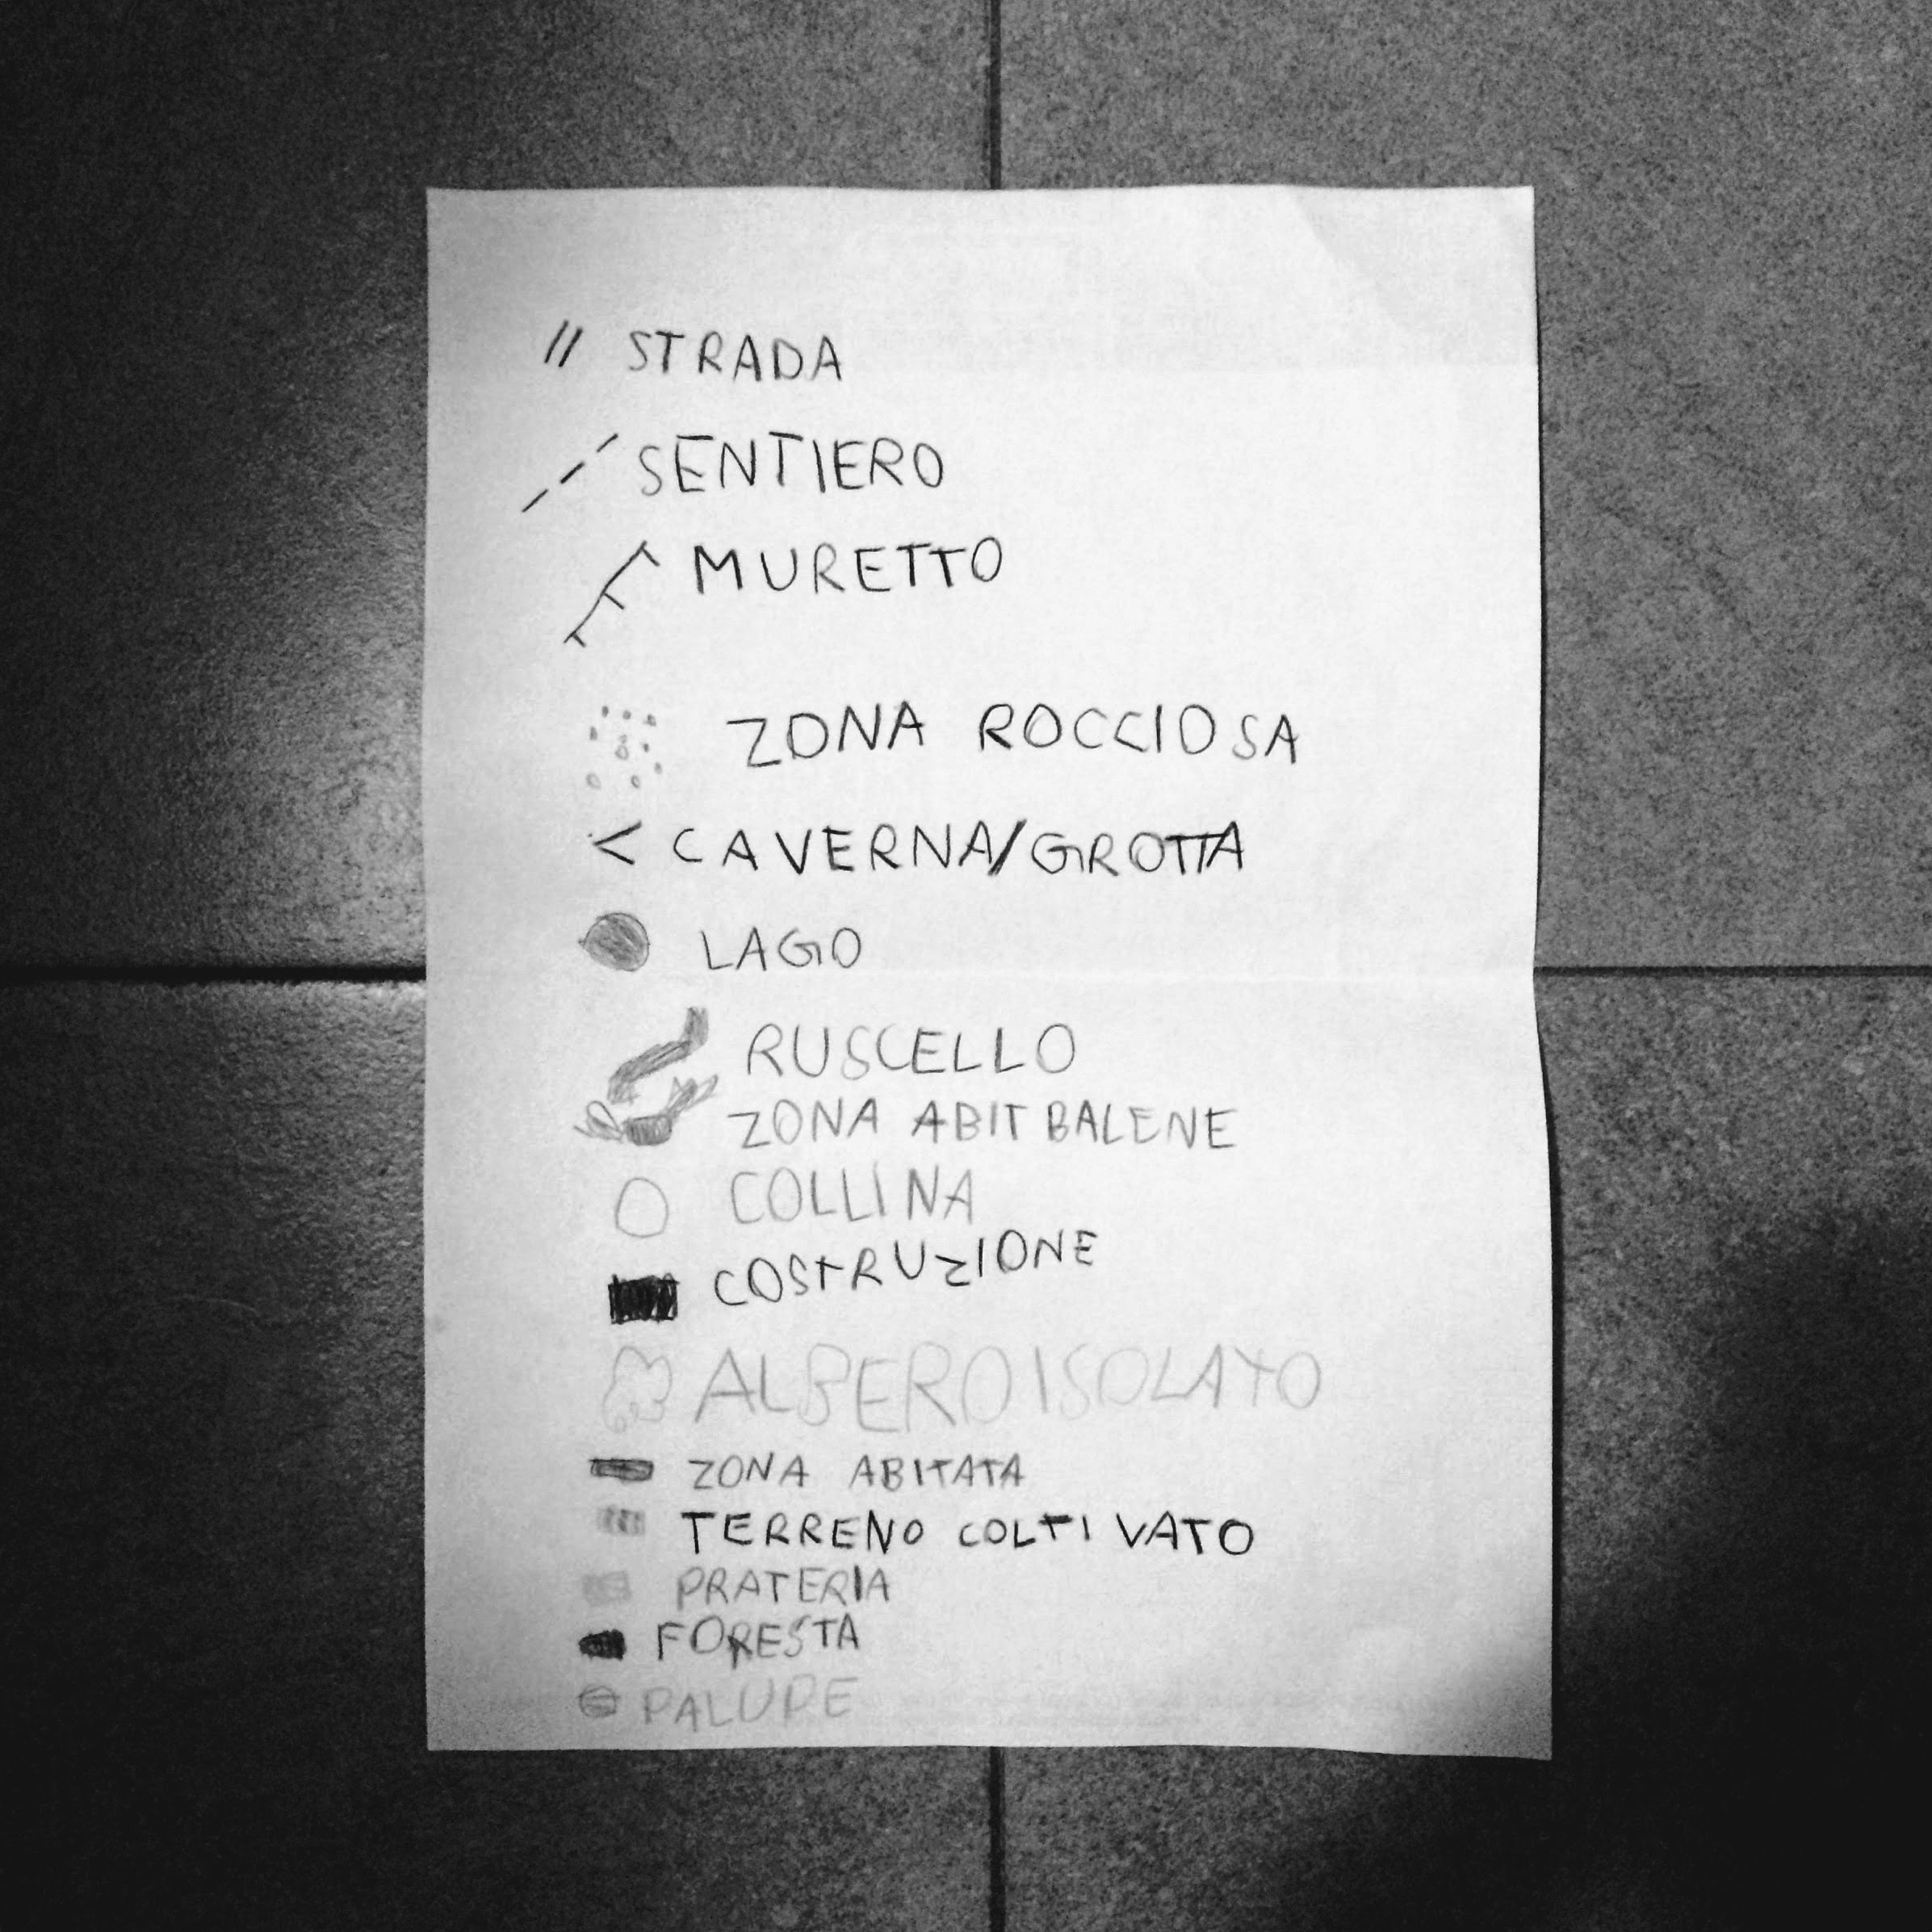 STRADA
SENTIERO
MURETTO
ZONA ROCCIOSA
CAVERNA/GROTTA
LAGO
RUSCELLO
ZONA ABIT BALENE
COLLINA
COSTRUZIONE
ALBERO ISOLATO
ZONA ABITATA
TERRENO COLTIVATO
PRATERIA
FORESTA
PALUDE